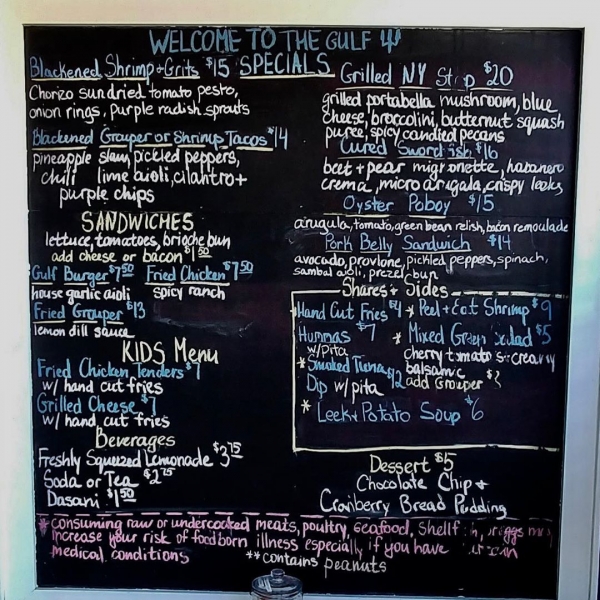 WELCOME TO THE GULF
SPECIALS
Blackened Shrimp + Grits $15
Chorizo sundried tomato pesto,
onion rings, purple radish sprouts
Blackened Grouper or Shrimp Tacos $14
pineapple slaw, pickled peppers,
chili lime aioli, cilantro +
purple chips
SANDWICHES
lettuce, tomatoes, brioche bun
add cheese or bacon $1.50
Gulf Burger $7.50 Fried Chicken $7.50
house garlic aioli spicy ranch
Fried Grouper $13
lemon dill sauce
KIDS Menu
Fried Chicken Tenders $7
w/ hand cut fries
Grilled Cheese $7
w/ hand cut fries
Beverages
Freshly Squeezed Lemonade $3.75
Soda or Tea $2.75
Dasani $1.50
Grilled NY St p $20
grilled portabella mushroom, blue
cheese, broccolini, butternut squash
puree, spicy candied pecans
Cured Swordfish $16
beet + pear mignonette, habanero
crema, micro arugula, crispy leeks
Oyster Poboy $15
arugula, tomato, green bean relish, bacon remoulade
Pork Belly Sandwich $14
avocado, provlone, pickled peppers, spinach,
sambal aioli, prezel bun
Shares + Sides
*Hand Cut Fries $4
Hummas $7
w/ Pita
*Smoked Tuna
Dip w/ pita $12
* Peel + Eat Shrimp $9
* Mixed Green Salad $5
cherry tomato's creamy
balsamic
add Grouper
* Leek + Potato Soup $6
Dessert $5
Chocolate Chip +
Cranberry Bread Pudding
* consuming raw or undercooked meats, poultry, seafood, shellf h, or eggs may
increase your risk of foodborn illness especially if you have certain
medical conditions
**contains peanuts